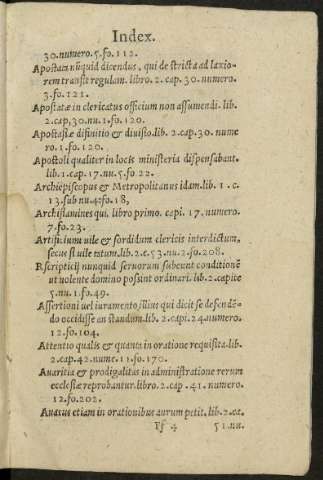 Index.
30.numero.5.fo.112.
Apostata nũquid dicendus, qui de stricta ad laxio-
rem transit regulam. libro.2.cap.30.numero.
3.fo.121.
Apostatæ in clericatus officium non assumendi.lib.
2.cap,30.nu.1.fo.120.
Apostasiæ difinitio & diuisio.lib.2.cap.30.nume
ro.1.fo.120.
Apostoli qualiter in locis ministeria dispensabant.
lib.1.cap.17.nu.5.fo.22.
Archiepiscopus & Metropolitanus idem.lib.1.c.
13.sub nu.4.fo.18,
Archiflamines qui, libro primo. capi.17.numero.
7.fo.23.
Artificium uile & sordidum clericis interdictum,
secus si uile tatum.lib.2.c.53.nu.2.fo.208.
Rscripticij nunquid seruorum subeunt conditionẽ
ut uolente domino possint ordinari. lib.2.capite
5.nu.1.fo.49.
Assertioni uel iuramento illius qui dicit se defendẽ-
do occidisse an standum.lib.2.capi.24.numero.
12.fo.104.
Attentio qualis & quanta in oratione requisita.lib.
2.cap.42.nume.11.fo.170.
Auaritia & prodigalitas in administratione rerum
ecclesiæ reprobantur.libro.2.cap.41.numero.
12.fo.202.
Auarus etiam in orationibus aurum petit. lib.2.ca.
Ff 4
51.nu.